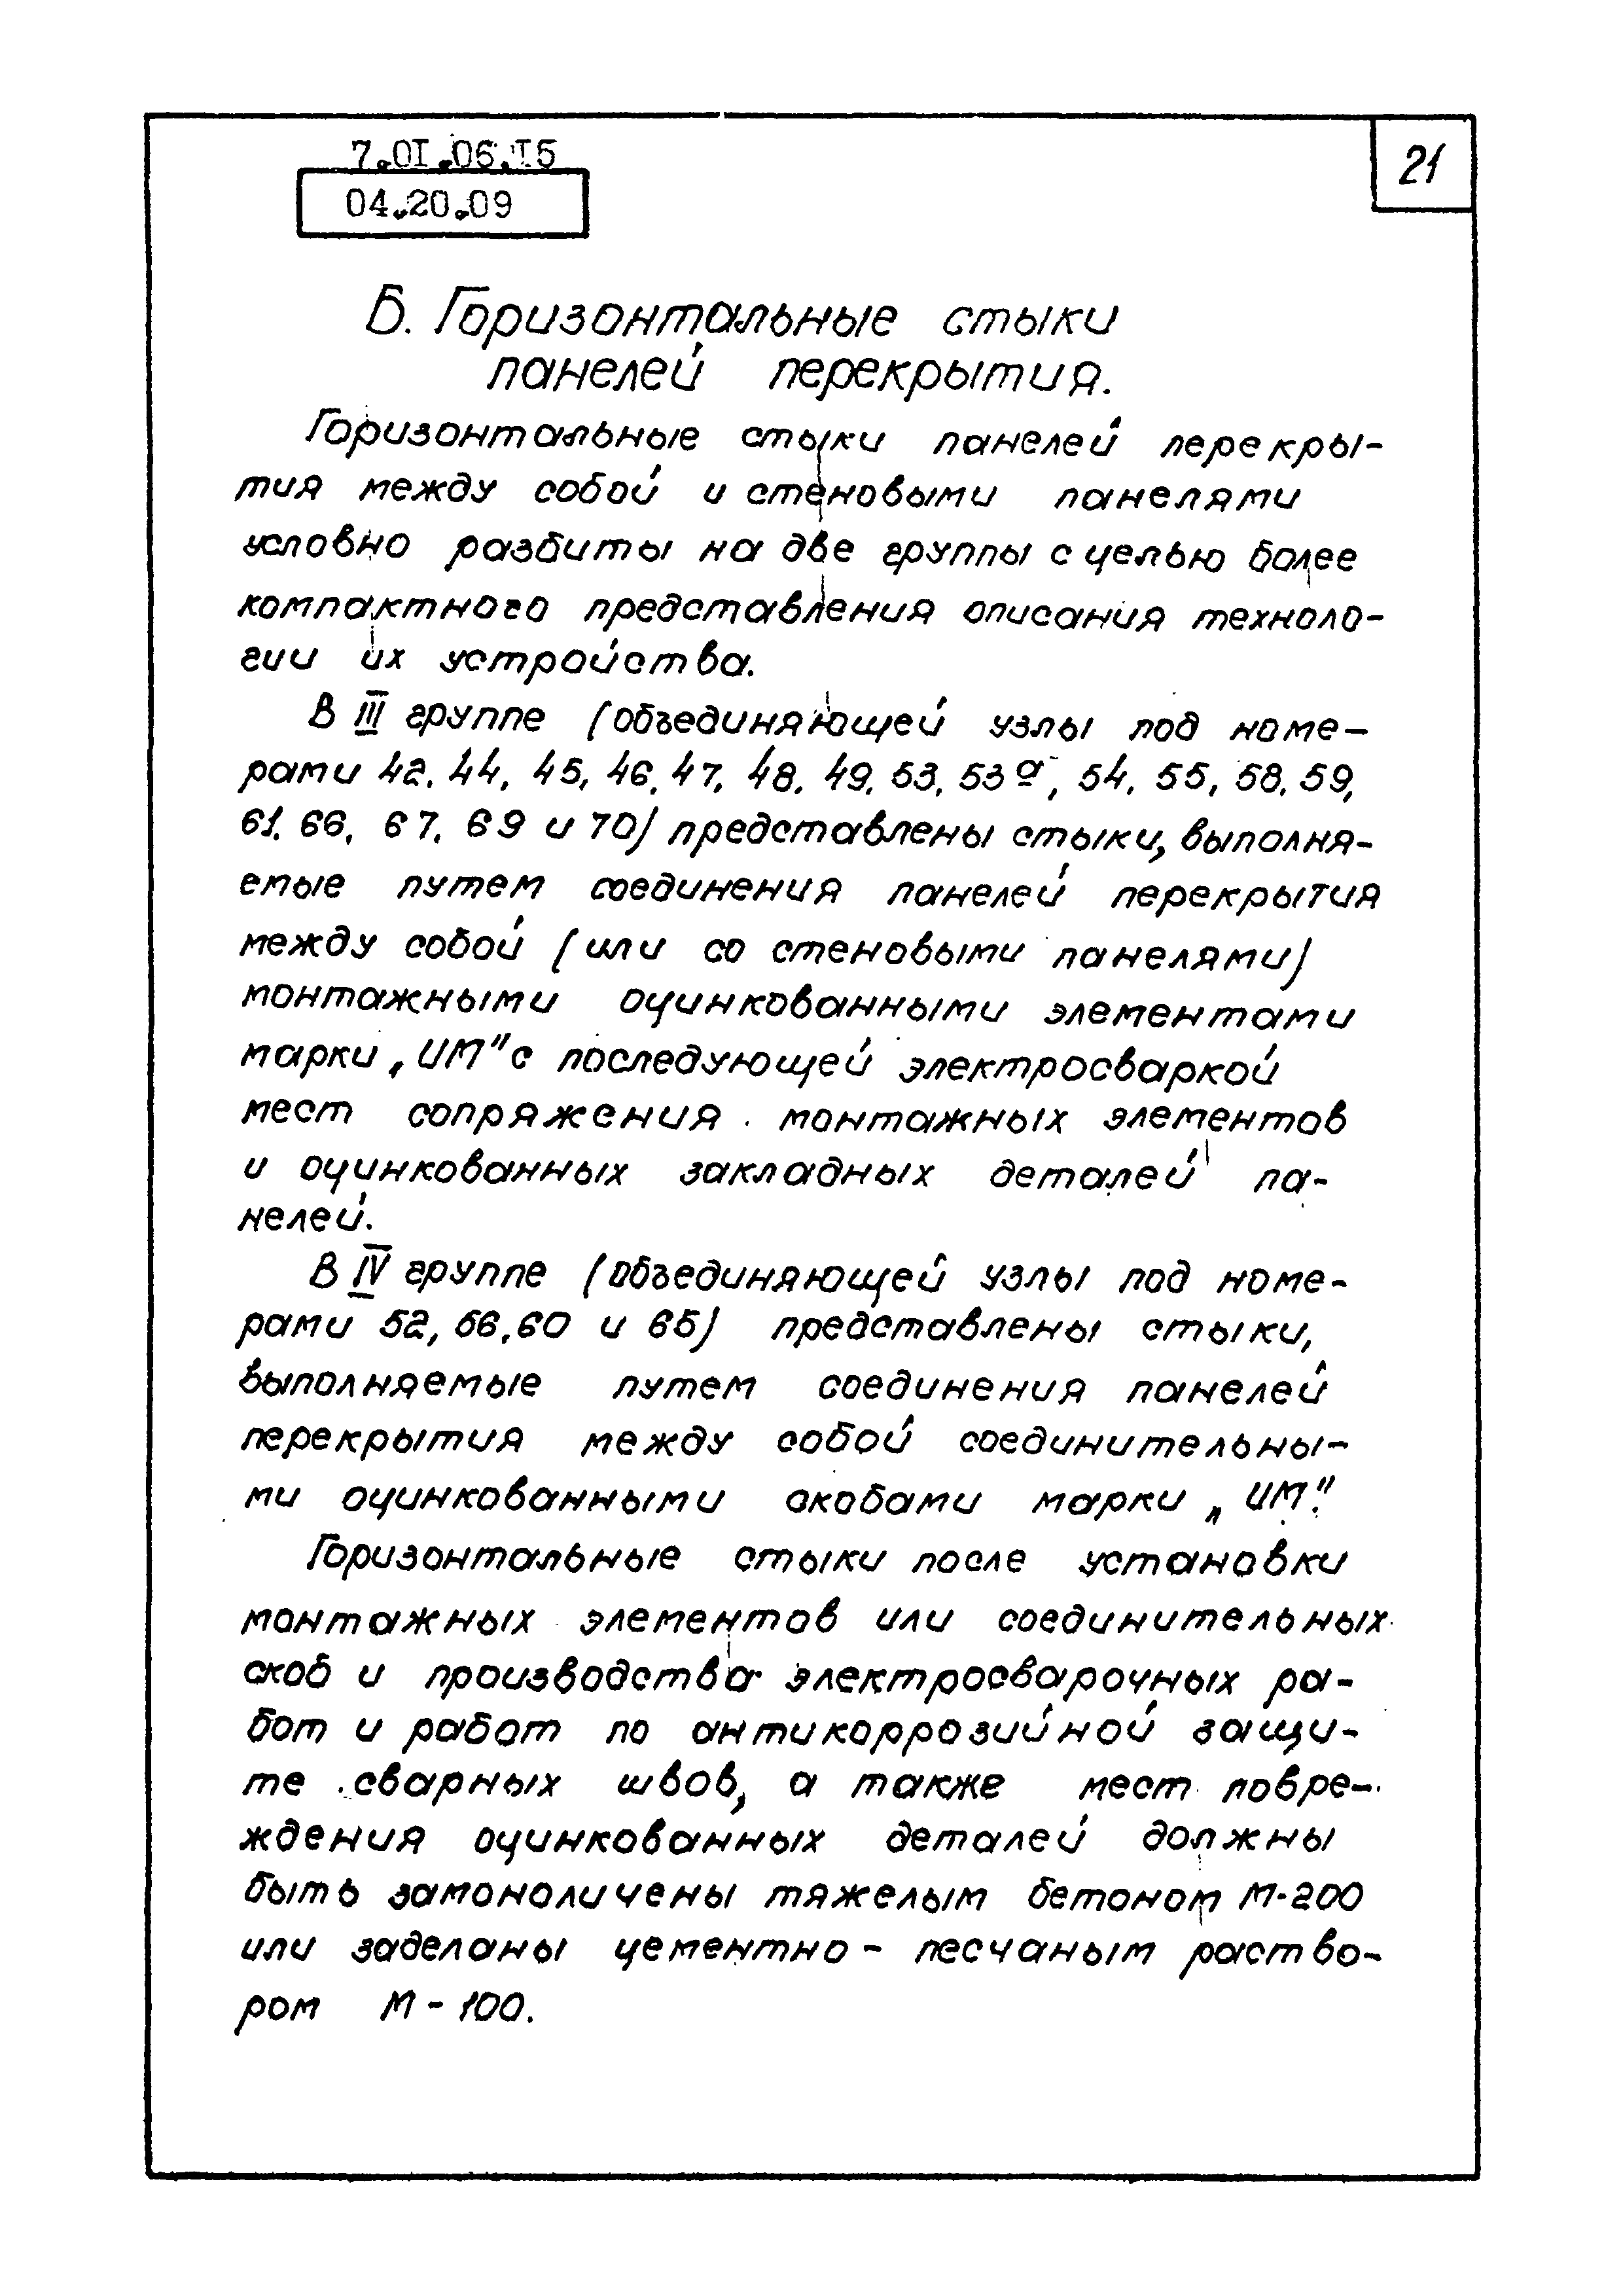 7.01.06.15
04.20.09
21
Б. Горизонтальные стыки
панелей перекрытия.
Горизонтальные стыки панелей перекры-
тия между собой и стеновыми панелями
условно разбиты на две группы с целью более
компактного представления описания техноло-
гии их устройства.
В III группе (объединяющей узлы под номе-
рами 42, 44, 45, 46, 47, 48, 49, 53, 53а, 54, 55, 58, 59,
61, 66, 67, 69 и 70) представлены стыки, выполня-
емые путем соединения панелей перекрытия
между собой (или со стеновыми панелями)
монтажными оцинкованными элементами
марки „ИМ" с последующей электросваркой
мест сопряжения монтажных элементов
и оцинкованных закладных деталей па-
нелей.
В IV группе (объединяющей узлы под номе-
рами 52, 56, 60 и 65) представлены стыки,
выполняемые путем соединения панелей
перекрытия между собой соединительны-
ми оцинкованными скобами марки „ИМ".
Горизонтальные стыки после установки
монтажных элементов или соединительных
скоб и производства электросварочных ра-
бот и работ по антикоррозийной защи-
те сварных швов, а также мест повре-
ждения оцинкованных деталей должны
быть замоноличены тяжелым бетоном М-200
или заделаны цементно-песчаным раство-
ром М-100.